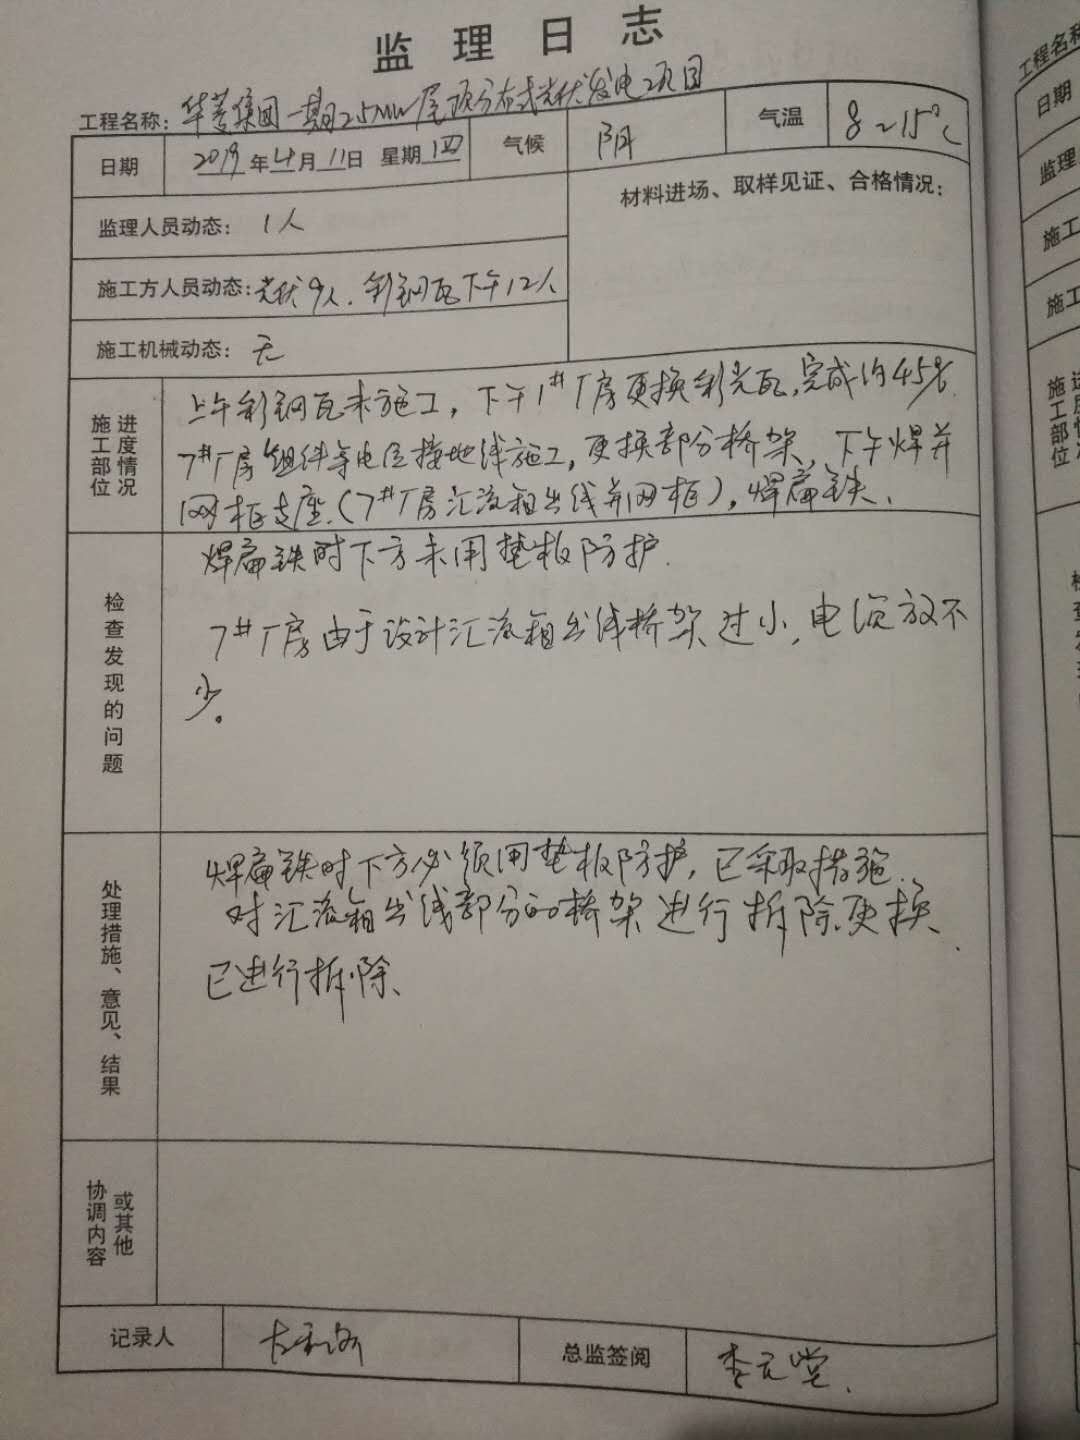 监理日志
工程名称：华菱集团一期2.5MW屋顶分布式光伏发电项目
日期 2019年4月11日 星期四 气候 阴 气温 8~15℃
监理人员动态：1人
材料进场、取样见证、合格情况：
施工方人员动态：光伏9人、彩钢瓦下午12人
施工机械动态：无
施工部位进度情况
上午彩钢瓦未施工，下午1#厂房更换彩光瓦，完成约45%.
7#厂房组件等电位接地线施工，更换部分桥架，下午焊并
网柜支座.(7#厂房汇流箱出线并网柜)，焊扁铁、
检查发现的问题
焊扁铁时下方未用垫板防护.
7#厂房由于设计汇流箱出线桥架过小，电缆放不
少。
处理措施、意见、结果
焊扁铁时下方必须用垫板防护，已采取措施.
对汇流箱出线部分的桥架进行拆除更换
已进行拆除、
协调内容或其他
记录人
总监签阅 李元堂
工程名称
日期
监理
施工
施工
施工部位